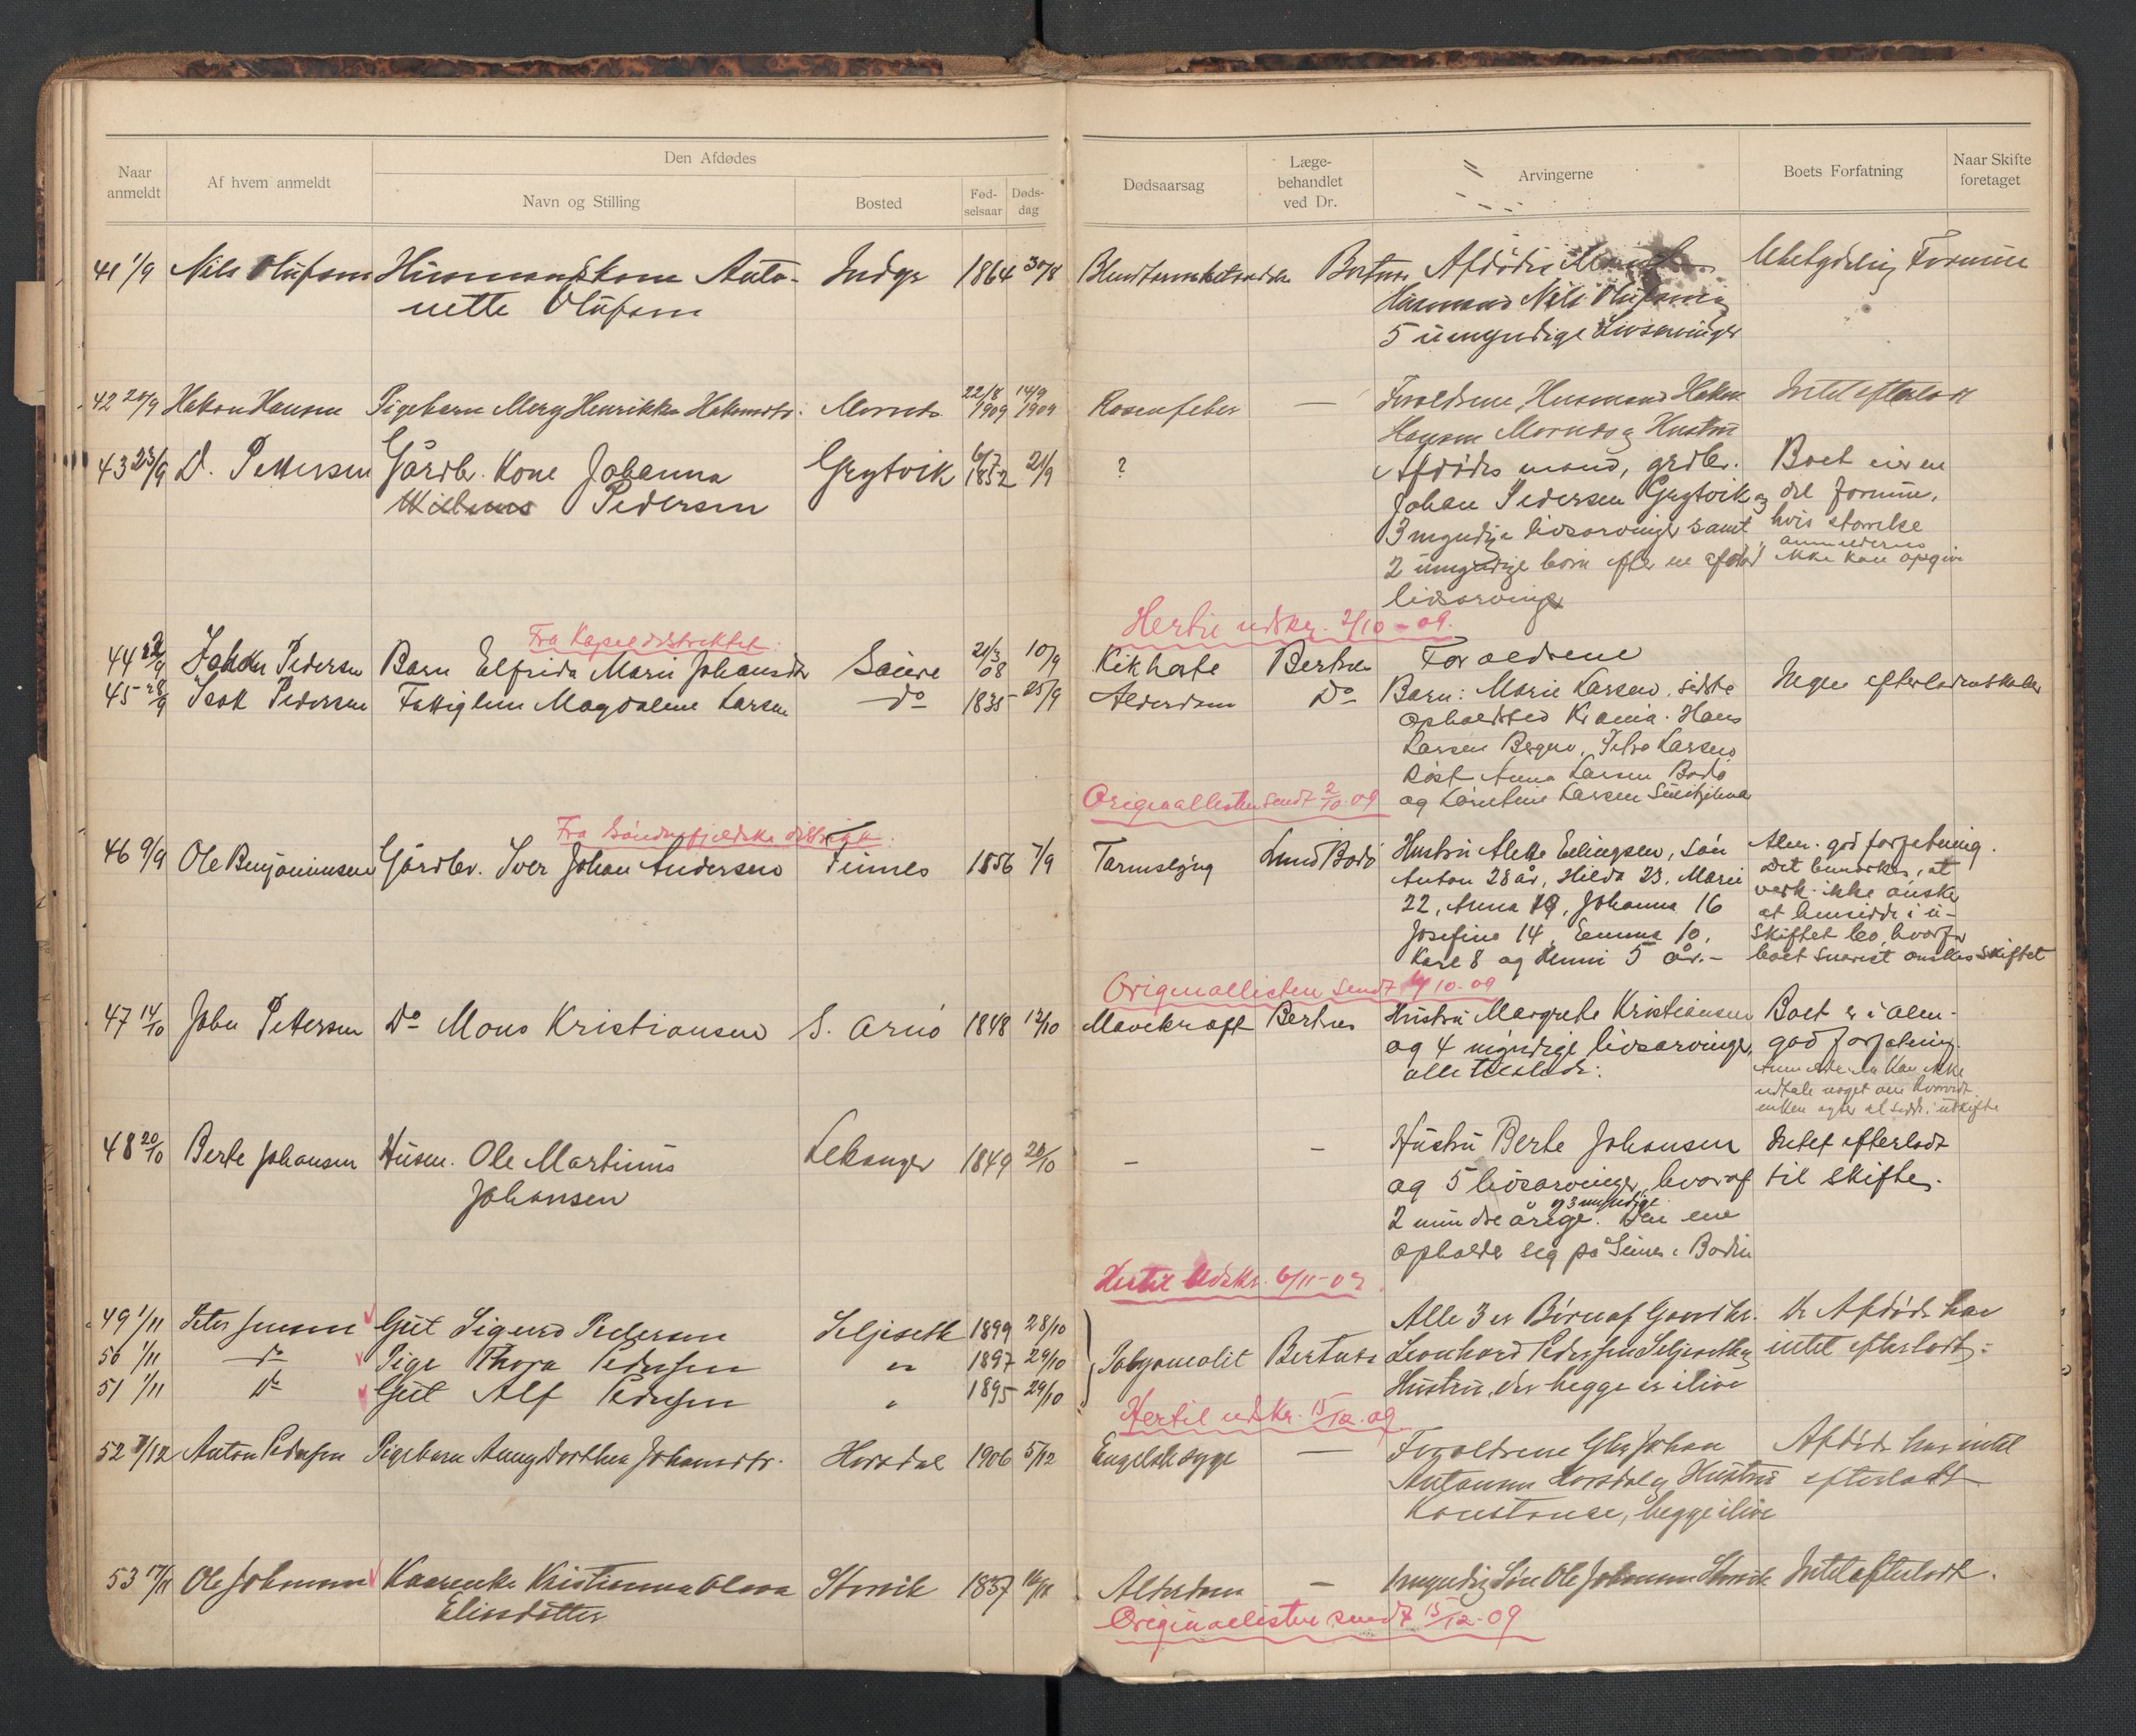 Naar anmeldt
Af hvem anmeldt
Den Afdødes
Navn og Stilling
Bosted
Fød-selsaar
Døds-dag
Dødsaarsag
Læge-behandlet ved Dr.
Arvingerne
Boets Forfatning
Naar Skifte foretaget
41 1/9 Nils Olufsen Husmandskone Anto- Indyr 1864 30/8 Afdødes Ubetydelig Formue
nette Olufsen Husmand Nils Olufsen og
5 umyndige Livsarvinger
42 20/9 Hakon Hansen Pigebarn Mery Henrikke Hakonsdtr. Mornes 22/8 1909 14/9 1909 Rosenfeber — Forældrene, Husmand Hakon Intet efterladt
Hansen Mornes og Hustru
43 23/9 D. Pettersen Gårdbr. Kone Johanna Grytvik 6/7 1852 21/9 ? Afdødes mand, grdbr. Boet eier en
Pedersen Johan Pedersen Grytvik og del formue,
3 myndige livsarvinger samt hvis størrelse
anmelderen
2 umyndige børn efter en afdød ikke kan opgive
livsarving
Hertil udskr. 2/10-09.
Fra Kapeldistriktet.
44 Johan Pedersen Barn Elfrida Marie Johansdtr 21/3 08 10/9 Kikhoste Bertnes Forældrene
45 28/9 Isak Pedersen Fattiglem Magdalene Larsen do 1835 25/9 Alderdom Do Barn: Marie Larsen, sidste Ingen efterladenskaber
opholdsted Kr.ania. Hans
Larsen Bergen, Petra Larsen
Røst Anna Larsen Bodø
Originallisten sendt 2/10-09 og Larsen Sulitjelma
Fra Søndenfjeldske distrikt.
46 9/9 Ole Benjaminsen Gårdbr. Iver Johan Andersen 1856 7/9 Tarmslyng Lund Bodø Hustru Alette Ellingsen, søn Alm. god forfatning.
Anton 28 år, Hilda 23, Marie Det bemærkes, at
22, Anna 19, Johanna 16 ikke ønske
Josefine 14, Emma 10, at hensidde i u-
Karl 8 og Henni 5 år.- skiftet bo, hvorfor
boet snarest ønskes skiftet
Originallisten sendt 10-09
47 14/10 John Pettersen Do Mons Kristiansen S. Arnø 1848 12/10 Mavekræft Bertnes Hustru Margrete Kristiansen Boet er i alm.
og 4 myndige livsarvinger, god forfatning.
alle tilstede. Anmelderen kan ikke
udtale noget om hvorvidt
enken agter at sidde i uskifte
48 20/10 Berte Johansen Husm. Ole Martinus Lekanger 1849 20/10 — — Hustru Berte Johansen Intet efterladt
Johansen og 5 livsarvinger, hvoraf til skifte.
og 3 myndige
2 mindreårige. Den ene
opholder seg på Seines i Bodin
Hertil udskr. 6/11-09
49 1/11 Peter Jensen Gut Sigurd Pedersen Seljeseth 1899 28/10 Alle 3 er Børn af Gaardbr. De Afdøde har
50 1/11 do Pige Thora Pedersen " 1897 29/10 Bertnes Leonhard Pedersen Seljeseth og intet efterladt.
51 1/11 Do Gut Alf Pedersen " 1895 29/10 Hustru, der begge er ilive
Hertil udskr. 15/12-09
52 Anton Pedersen Pigebarn Anny Dorthea Johansdtr. Horsdal 1906 5/12 Engelsk syge — Forældrene Gbr. Johan Afdøde har intet
Antonsen Horsdal og Hustru efterladt
Konstanse, begge ilive
53 Ole Johnsen Kristianna Olava Storvik 1837 Alderdom — 1 myndig Søn Ole Johnsen Storvik Intet efterladt.
Eliasdotter
Originallisten sendt 15/12-09